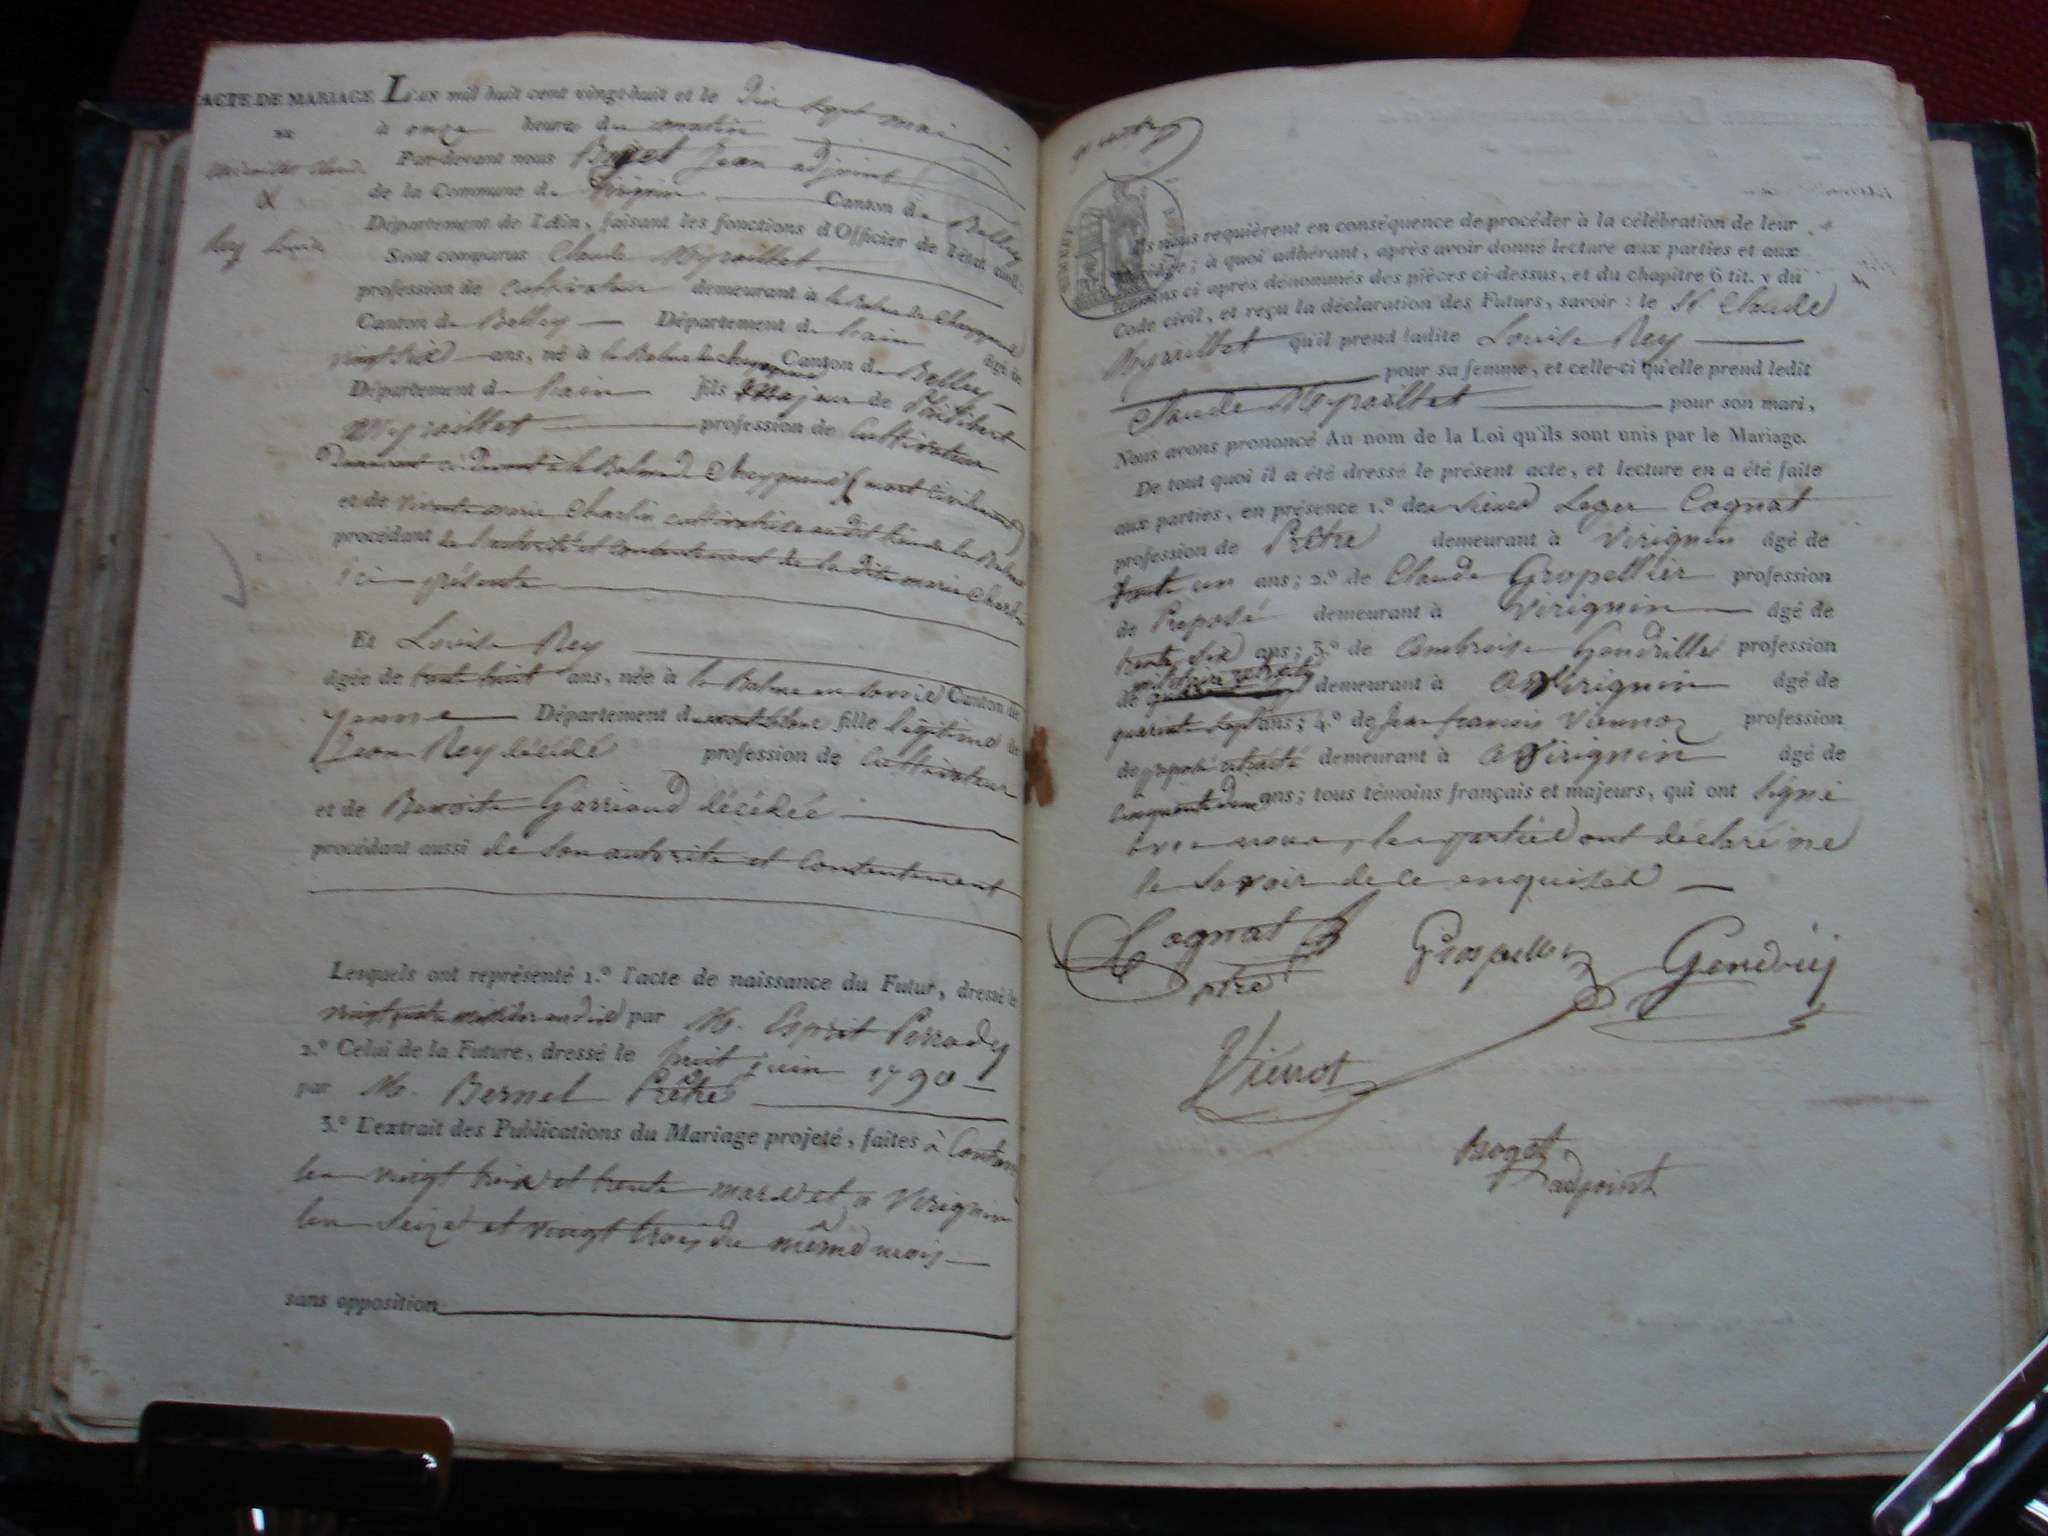 ACTE DE MARIAGE L'an mil huit cent vingt-huit et le Dix sept mai
à onze heures du matin
Par-devant nous Boget Jean adjoint
de la Commune de Virignin Canton de Belley
Département de l'Ain, faisant les fonctions d'Officier de l'état civil;
Rey Louise
Sont comparus Claude
profession de cultivateur demeurant à la Balme de
Canton de Belley Département de l'ain âgé de
vingt six ans, né à la Balme Canton de Belley
Département de l'ain fils Majeur de Philibert
profession de Cultivateur
Demeurant ci devant à la Balme de (mort civilement)
et de vivante marie Charlin cultivatrice au dit lieu de la Balme
procédant de l'autorité et consentement de la dite marie Charlin
ici présente
Et Louise Rey
âgée de trente huit ans, née à la Balme en Savoie Canton de
Yenne Département du montblanc fille légitime de
Jean Rey décédé profession de Cultivateur
et de Benoite Garriaud décédée
procédant aussi de son autorité et Consentement
Lesquels ont représenté 1.º l'acte de naissance du Futur, dressé le
par M. Esprit Perrody
2.º Celui de la Future, dressé le huit juin 1790
par M. Bernel Prêtre
3.º L'extrait des Publications du Mariage projeté, faites à
les vingt trois et trente mars et à Virignin
les Seize et vingt trois du même mois
sans opposition
Ils nous requièrent en conséquence de procéder à la célébration de leur
mariage; à quoi adhérant, après avoir donné lecture aux parties et aux
témoins ci après dénommés des pièces ci-dessus, et du chapitre 6 tit. v du
Code civil, et reçu la déclaration des Futurs, savoir: le Sr. Claude
qu'il prend ladite Louise Rey
pour sa femme, et celle-ci qu'elle prend ledit
Claude pour son mari,
Nous avons prononcé Au nom de la Loi qu'ils sont unis par le Mariage.
De tout quoi il a été dressé le présent acte, et lecture en a été faite
aux parties, en présence 1.º de sieurs Leger Cognat
profession de Prêtre demeurant à Virignin âgé de
un ans; 2.º de Claude Gropellier profession
de Préposé demeurant à Virignin âgé de
trente six ans; 3.º de Ambroise Gendrille profession
de militaire retraité demeurant à a Virignin âgé de
quarante sept ans; 4.º de Jean francois Viennot profession
de préposé retraité demeurant à a Virignin âgé de
cinquante deux ans; tous témoins français et majeurs, qui ont signé
avec nous, les parties ont déclaré ne
le Savoir de ce enquises
Cognat
ptre
Grospellier
Gendrij
Viennot
Boget
adjoint